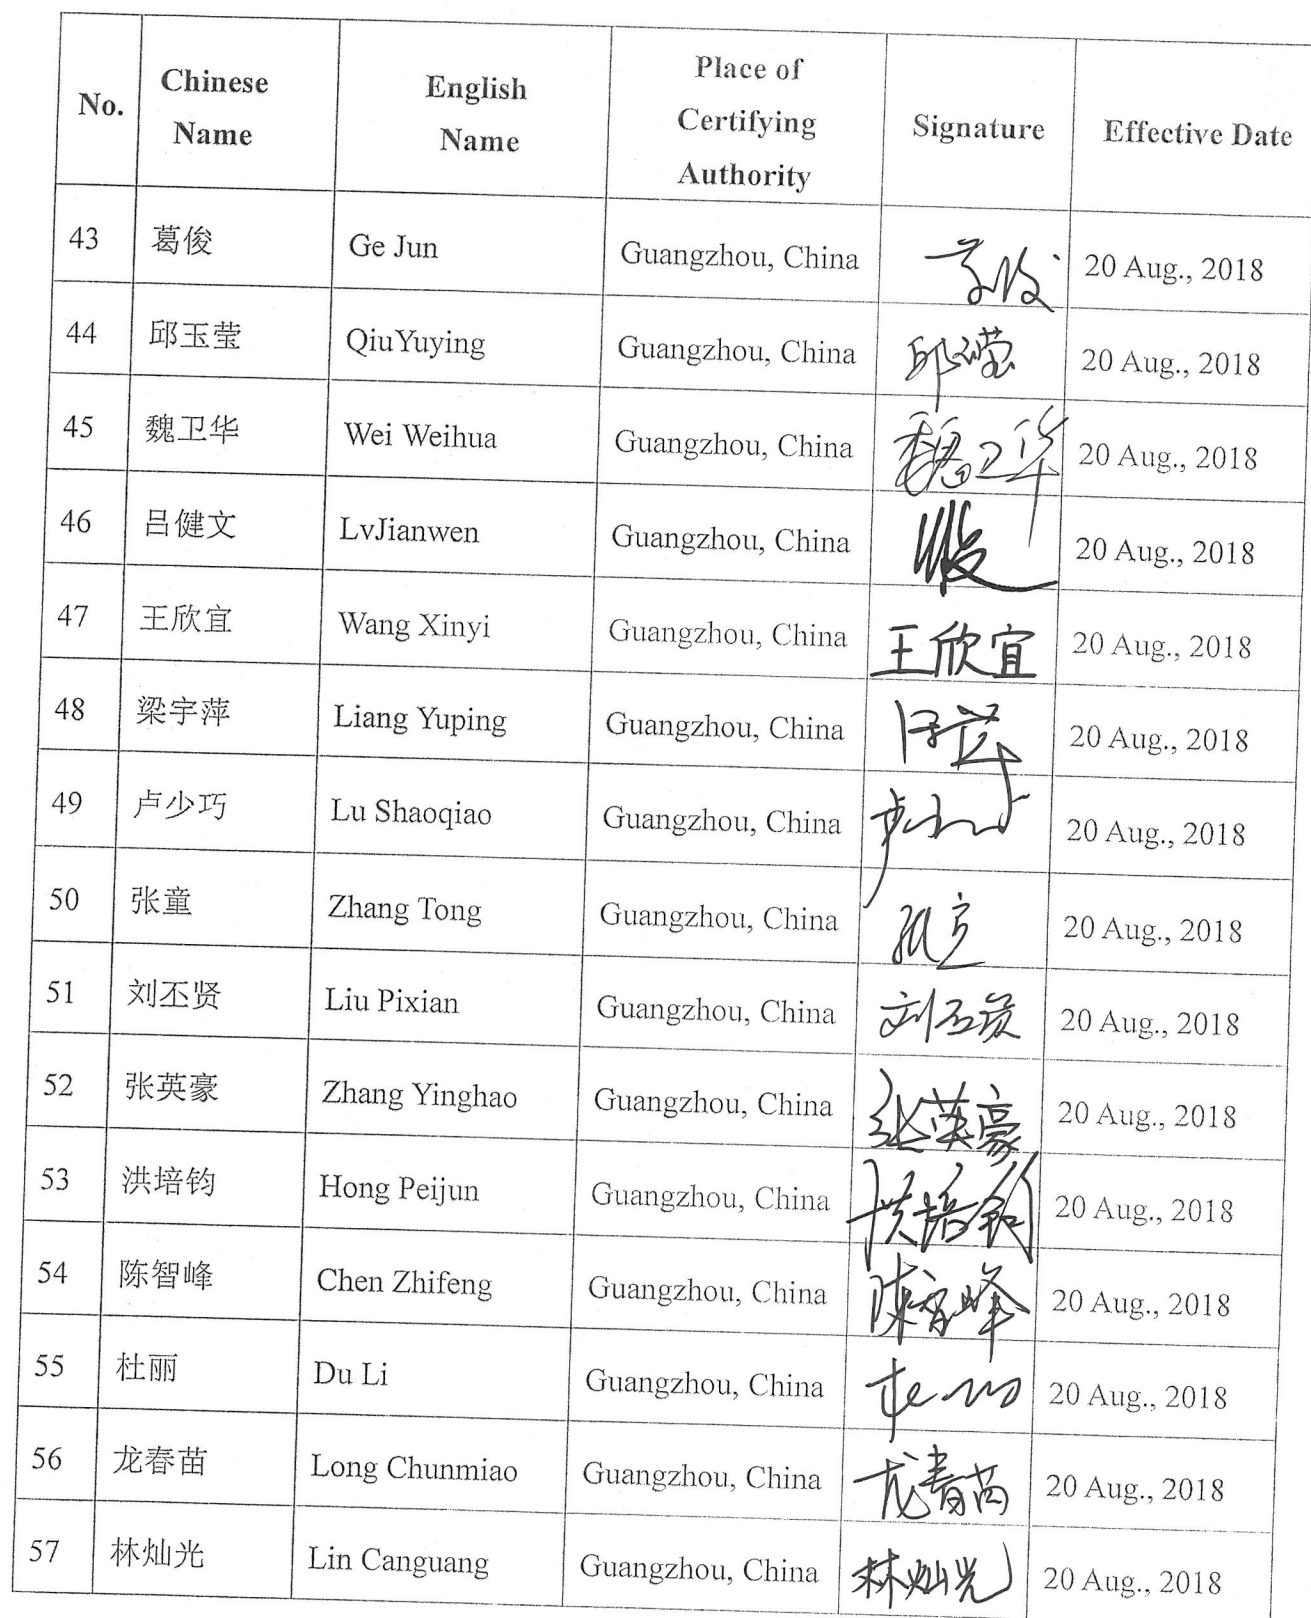 No. Chinese Name English Name Place of Certifying Authority Signature Effective Date
43 葛俊 Ge Jun Guangzhou, China 20 Aug., 2018
44 邱玉莹 QiuYuying Guangzhou, China 邱玉莹 20 Aug., 2018
45 魏卫华 Wei Weihua Guangzhou, China 魏卫华 20 Aug., 2018
46 吕健文 LvJianwen Guangzhou, China 20 Aug., 2018
47 王欣宜 Wang Xinyi Guangzhou, China 王欣宜 20 Aug., 2018
48 梁宇萍 Liang Yuping Guangzhou, China 20 Aug., 2018
49 卢少巧 Lu Shaoqiao Guangzhou, China 20 Aug., 2018
50 张童 Zhang Tong Guangzhou, China 20 Aug., 2018
51 刘丕贤 Liu Pixian Guangzhou, China 刘丕贤 20 Aug., 2018
52 张英豪 Zhang Yinghao Guangzhou, China 张英豪 20 Aug., 2018
53 洪培钧 Hong Peijun Guangzhou, China 洪培钧 20 Aug., 2018
54 陈智峰 Chen Zhifeng Guangzhou, China 陈智峰 20 Aug., 2018
55 杜丽 Du Li Guangzhou, China 20 Aug., 2018
56 龙春苗 Long Chunmiao Guangzhou, China 龙春苗 20 Aug., 2018
57 林灿光 Lin Canguang Guangzhou, China 林灿光 20 Aug., 2018